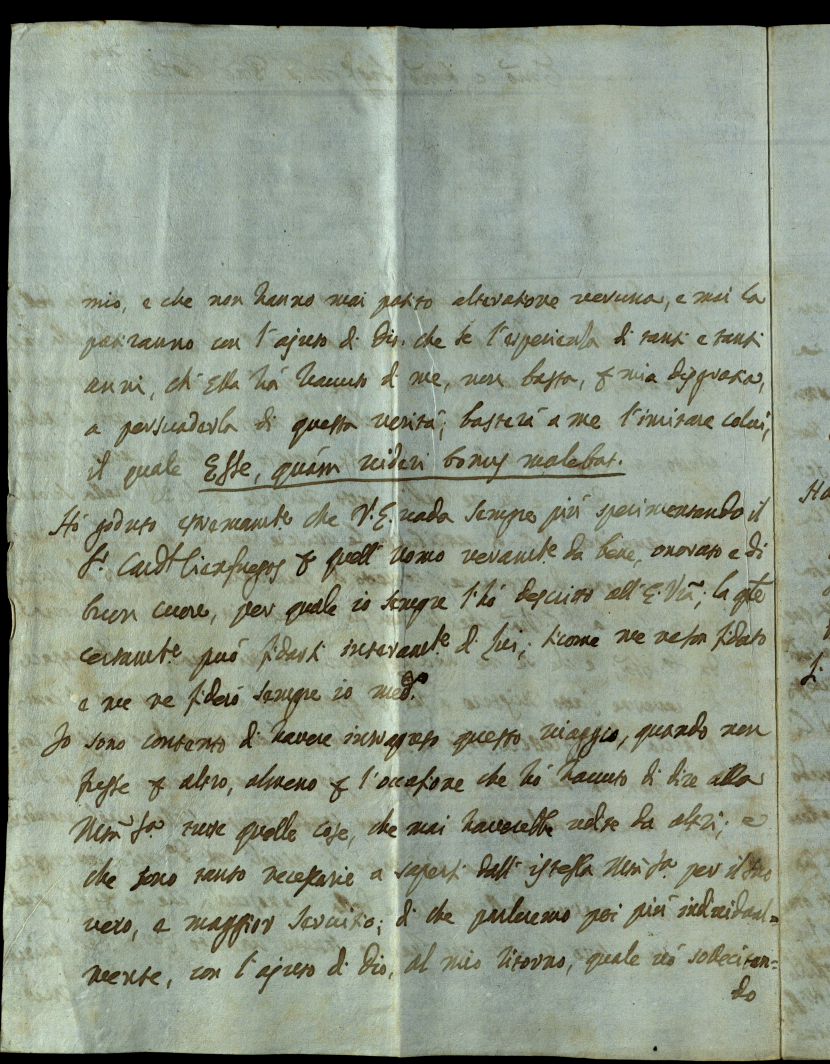 mio, e che non hanno mai patito alteratione veruna, e mai la
patiranno con l'ajuto di Dio. che se l'esperienza di tanti e tanti
anni, ch'Ella hà havuto di me, non basta, p mia disgratia,
a persuaderla di questa verità; basterà a me l'imitare colui,
il quale Esse, quàm videri bonus malebat.
Hò goduto estremamte che V.E. vada sempre più sperimentando il
Sr. Cardl Cienfuegos p quell'uomo veramte da bene, onorato e di
buon cuore, per quale io sempre l'hò descritto all'E. Vrã; la qle
certamte può fidarsi interamte di Lui, siccome me ne son fidato
e me ne fiderò sempre io medmo.
Io sono contento di havere intrapreso questo viaggio, quando non
fosse p altro, almeno p l'occasione che hò havuto di dire alla
tutte quelle cose, che mai haverebbe udite da altri; e
che sono tanto necessarie a sapersi dall'istessa per il suo
vero, e maggior servitio; di che parleremo poi più individual=
mente, con l'ajuto di Dio, al mio ritorno, quale vò sollecitan=
do